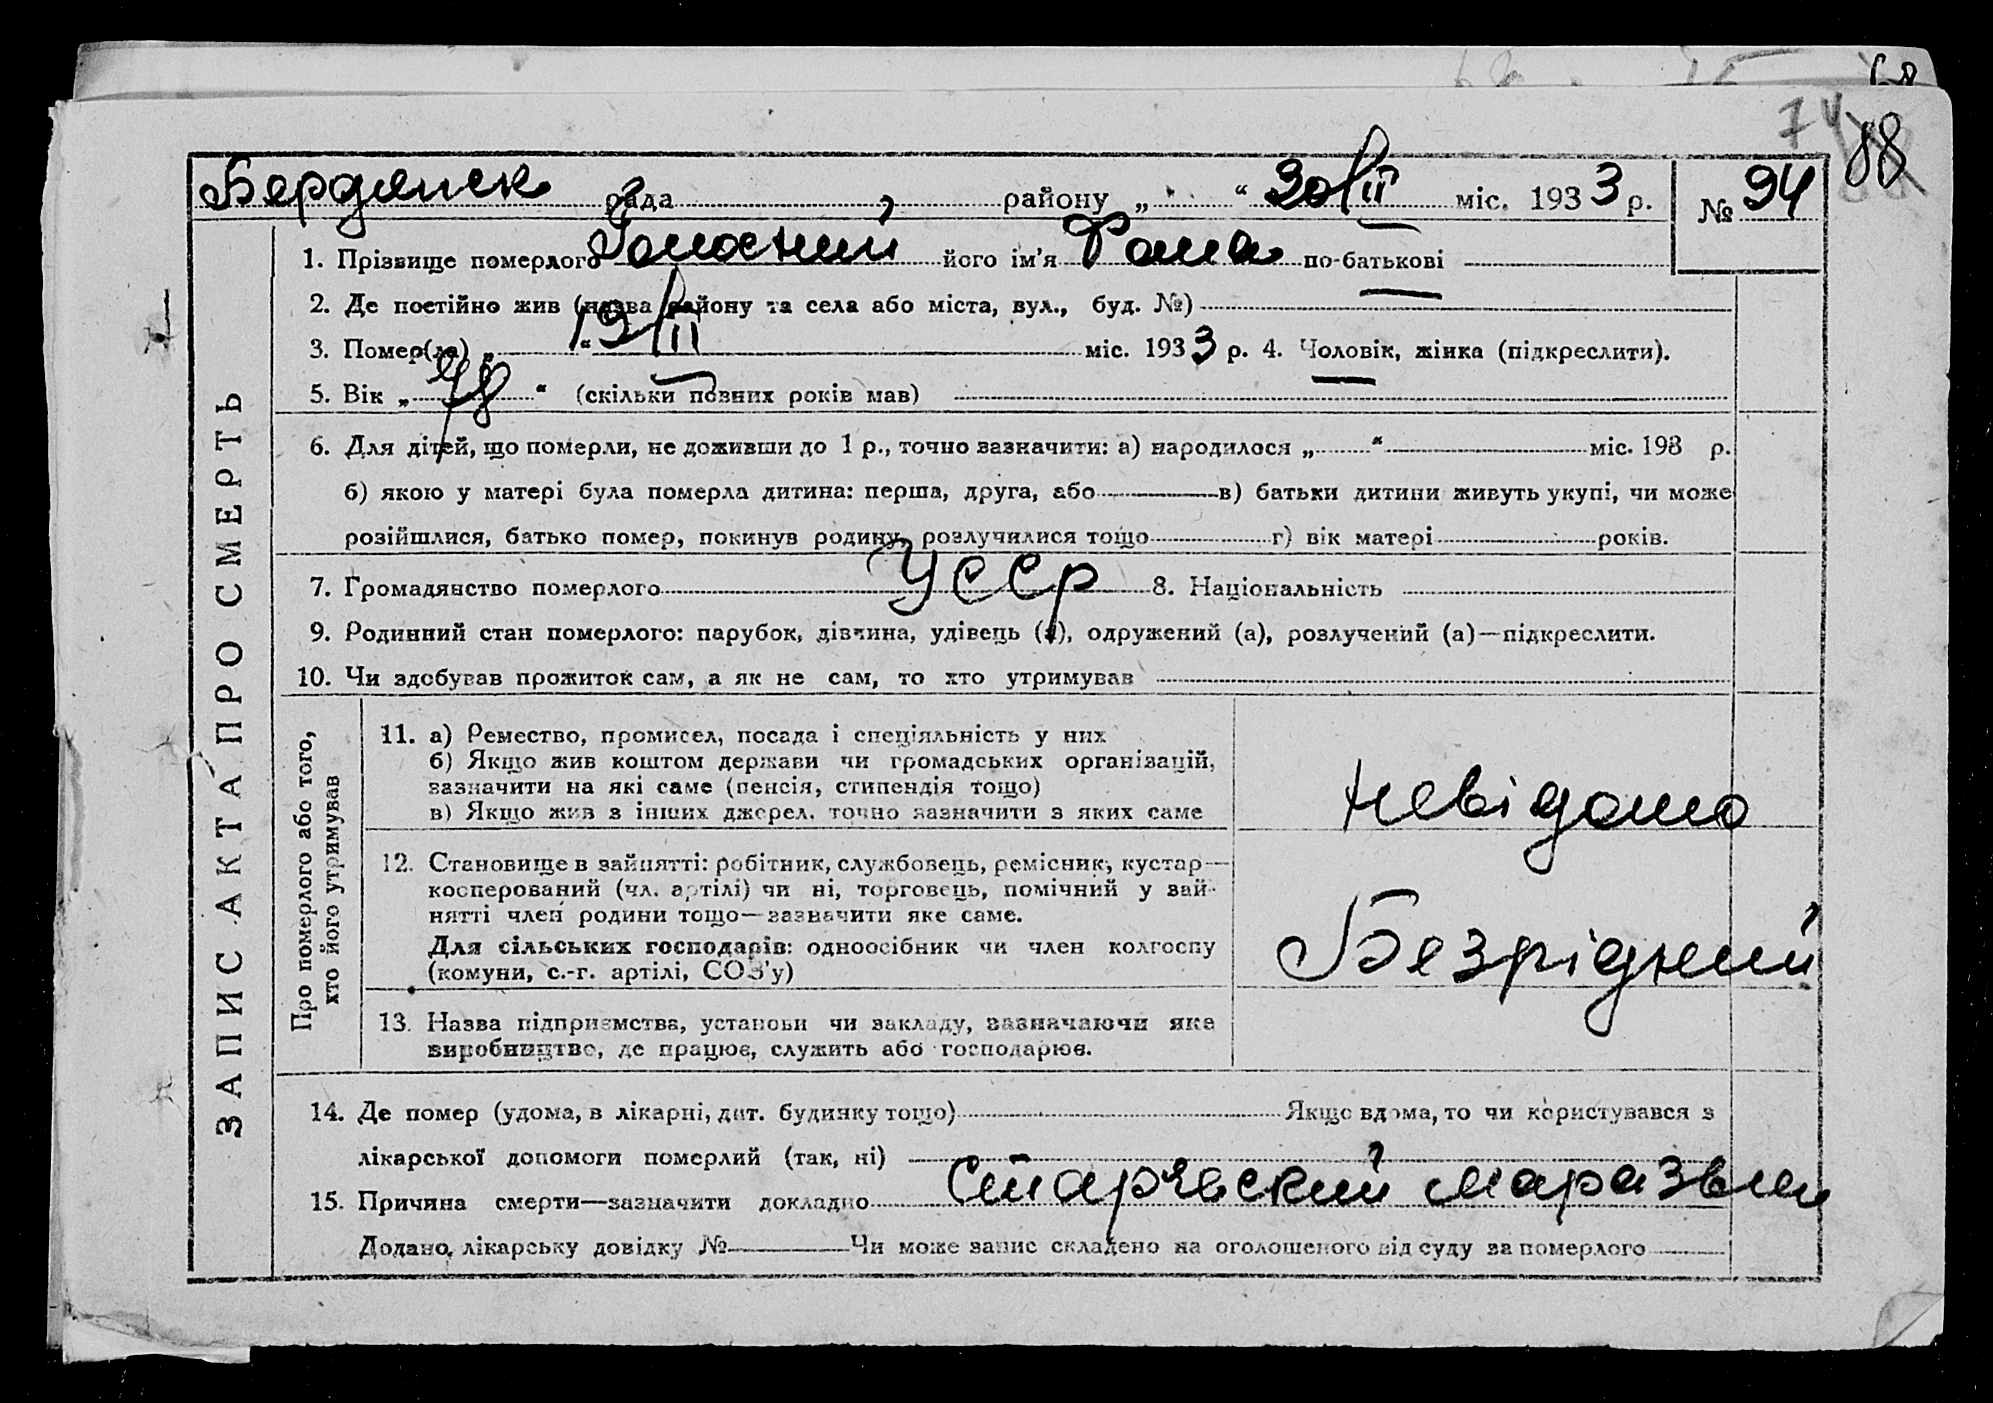 74 88
Бердянск рада района „ “ 30/II міс. 1933 р. № 94
1. Прізвище померлого його ім'я Фома по-батькові
2. Де постійно жив (назва району та села або міста, вул., буд. №) —
3. Помер(ла) „ “ 19/II міс. 1933 р. 4. Чоловік, жінка (підкреслити).
5. Вік „78“ (скільки повних років мав)
6. Для дітей, що померли, не доживши до 1 р., точно зазначити: а) народилося „ “ міс. 193 р.
б) якою у матері була померла дитина: перша, друга, або в) батьки дитини живуть укупі, чи може
розійшлися, батько помер, покинув родину, розлучилися тощо г) вік матері років.
7. Громадянство померлого УССР 8. Національність
9. Родинний стан померлого: парубок, дівчина, удівець (а), одружений (а), розлучений (а)—підкреслити.
10. Чи здобував прожиток сам, а як не сам, то хто утримував
ЗАПИС АКТА ПРО СМЕРТЬ
Про померлого або того,
хто його утримував
11. а) Ремество, промисел, посада і спеціяльність у них
б) Якщо жив коштом держави чи громадських організацій,
зазначити на які саме (пенсія, стипендія тощо)
в) Якщо жив з інших джерел, точно зазначити з яких саме
невідомо
12. Становище в зайнятті: робітник, службовець, ремісник, кустар—
косперований (чл. артілі) чи ні, торговець, помічний у зай-
нятті член родини тощо—зазначити яке саме.
Для сільських господарів: одноосібник чи член колгоспу
(комуни, с.-г. артілі, СОЗ'у)
Безрідний
13. Назва підприємства, установи чи закладу, зазначаючи яке
виробництво, де працює, служить або господарює.
14. Де помер (удома, в лікарні, дит. будинку тощо) Якщо вдома, то чи користувався з
лікарської допомоги померлий (так, ні)
15. Причина смерти—зазначити докладно Старчевский маразм
Додано, лікарську довідку № Чи може запис складено на оголошеного від суду за померлого